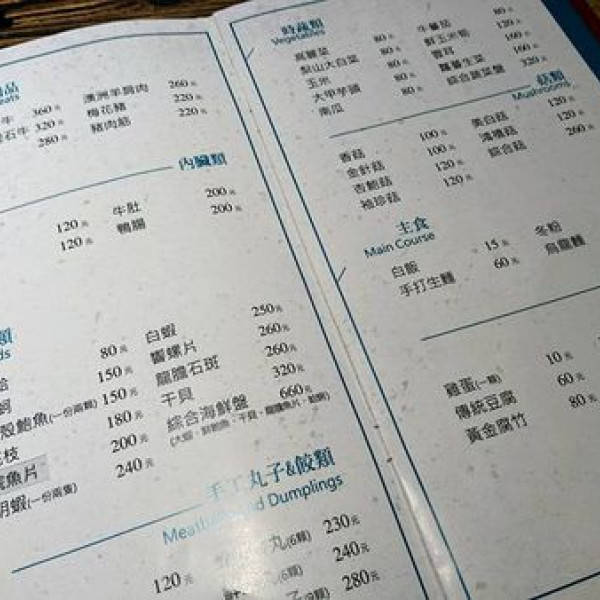 牛 360元 澳洲羊肩肉 260元
石牛 320元 梅花豬 220元
280元 豬肉筋 220元
內臟類
120元 牛肚 200元
120元 鴨腸 200元
白蝦 250元
80元 響螺片 260元
150元 龍膽石斑 260元
殼鮑魚(一份兩顆) 150元 干貝 320元
花枝 180元 綜合海鮮盤 660元
魚片 200元
胡蝦(一份兩隻) 240元
手工丸子&餃類
Meatballs and Dumplings
120元 丸(6顆) 230元
(6顆) 240元
280元
時蔬類
Vegetables
高麗菜 80元 牛蕃茄 80元
梨山大白菜 80元 鮮玉米筍 120元
玉米 80元 雲耳 160元
大甲芋頭 80元 蘿蔓生菜 160元
南瓜 80元 綜合蔬菜盤 320元
菇類
Mushrooms
香菇 100元 美白菇 120元
金針菇 100元 鴻禧菇 120元
杏鮑菇 120元 綜合菇 260元
袖珍菇 120元
主食
Main Course
白飯 15元 冬粉
手打生麵 60元 烏龍麵
雞蛋(一顆) 10元
傳統豆腐 60元
黃金腐竹 80元